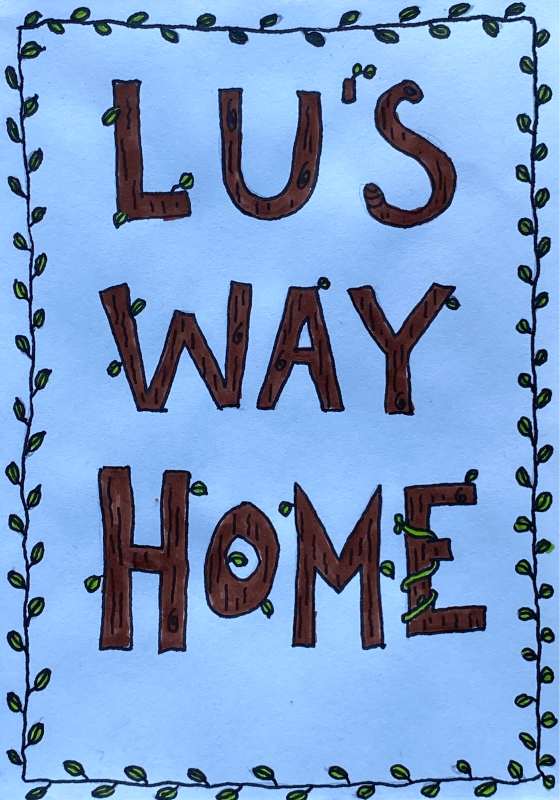 LU'S
WAY
HOME